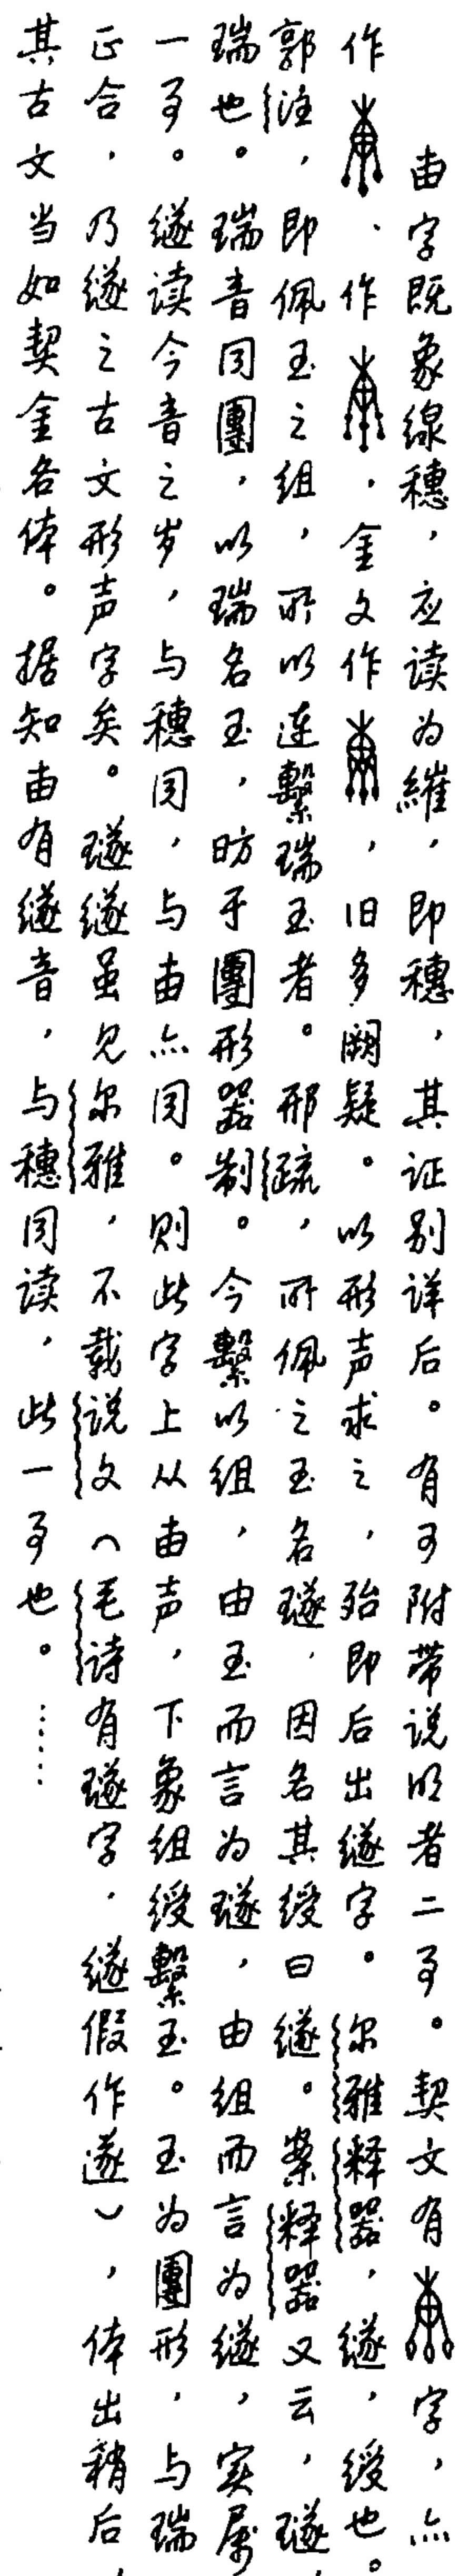 由字既象線穗，应读为繀，即穗，其证别详后。有可附带说明者二事。契文有字，亦
作、作，金文作，旧多阙疑。以形声求之，殆即后出繸字。尔雅释器，繸，绶也。
郭注，即佩玉之组，所以连繫瑞玉者。邢疏，所佩之玉名璲，因名其绶曰繸。案释器又云，璲，
瑞也。瑞音同團，以瑞名玉，昉于團形器制。今繫以组，由玉而言为璲，由组而言为繸，实属
一事。繸读今音之岁，与穗同，与由亦同。则此字上从由声，下象组绶繫玉。玉为團形，与瑞
正合，乃繸之古文形声字矣。璲繸虽见尔雅，不载说文（毛诗有璲字，繸假作遂），体出稍后，
其古文当如契金各体。据知由有繸音，与穗同读，此一事也。……